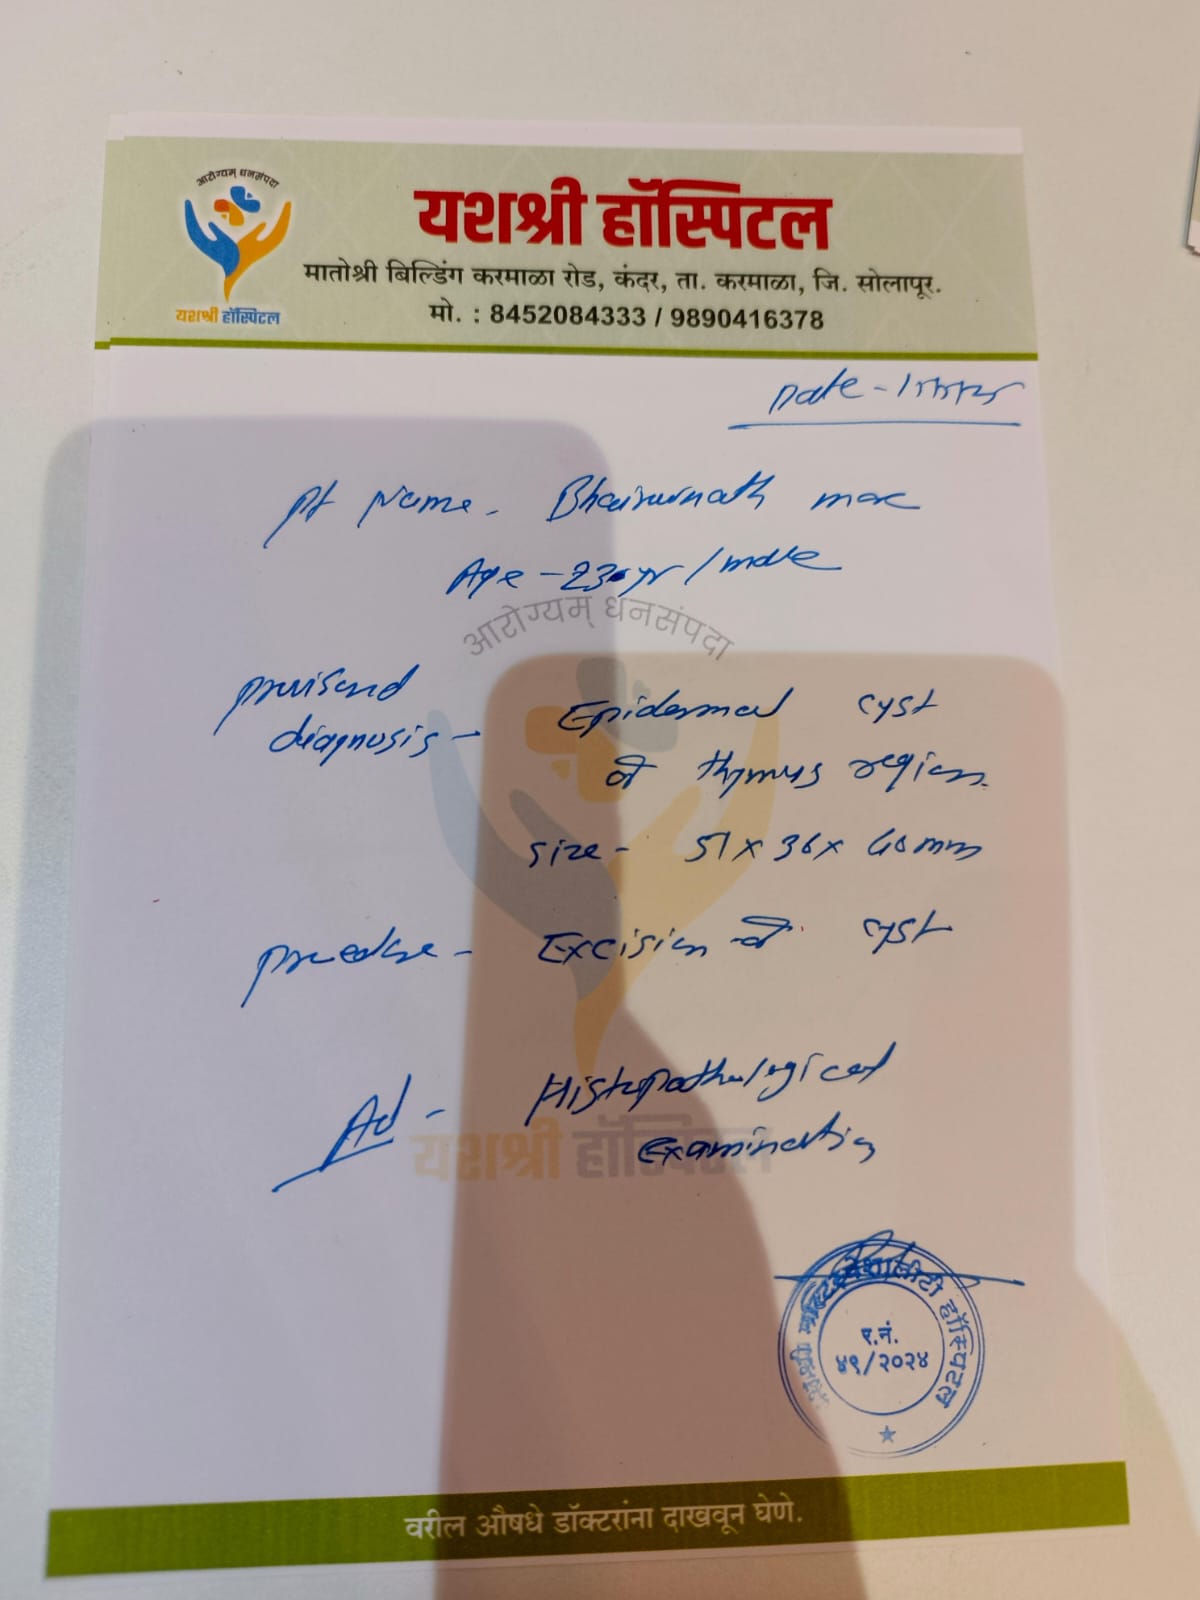 आरोग्यम् धनसंपदा
यशश्री हॉस्पिटल
यशश्री हॉस्पिटल
मातोश्री बिल्डिंग करमाळा रोड, कंदर, ता. करमाळा, जि. सोलापूर.
मो. : 8452084333 / 9890416378
Date -
Pt Name -
Age - 23 yr / male
आरोग्यम् धनसंपदा
diagnosis - Epidermal cyst
of thymus region.
size - 51 x 36 x 40 mm
Excision of cyst
Ad - Histopathological
Examination
यशश्री हॉस्पिटल
हॉस्पिटल
र.नं.
४९/२०२४
वरील औषधे डॉक्टरांना दाखवून घेणे.